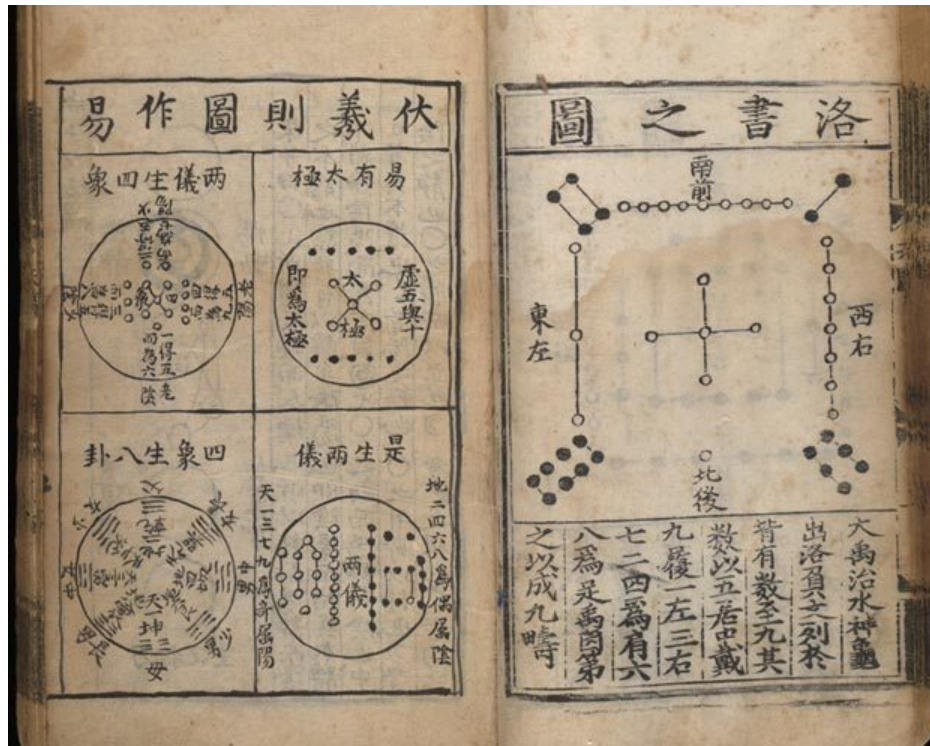 洛書之圖
南前
東左
西右
北後
大禹治水神龜
出洛負文列於
背有數至九其
數以五居中戴
九履一左三右
七二四為肩六
八為足禹因第
之以成九疇
伏羲則圖作易
易有太極
虛五與十
太極
即為太極
兩儀生四象
一得五
而為六
老陰
是生兩儀
地二四六八為偶屬陰
兩儀
天一三七九為奇屬陽
四象生八卦
父
母
少男